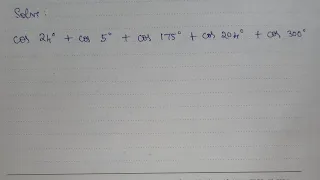 Solve:
cos 24° + cos 5° + cos 175° + cos 204° + cos 300°